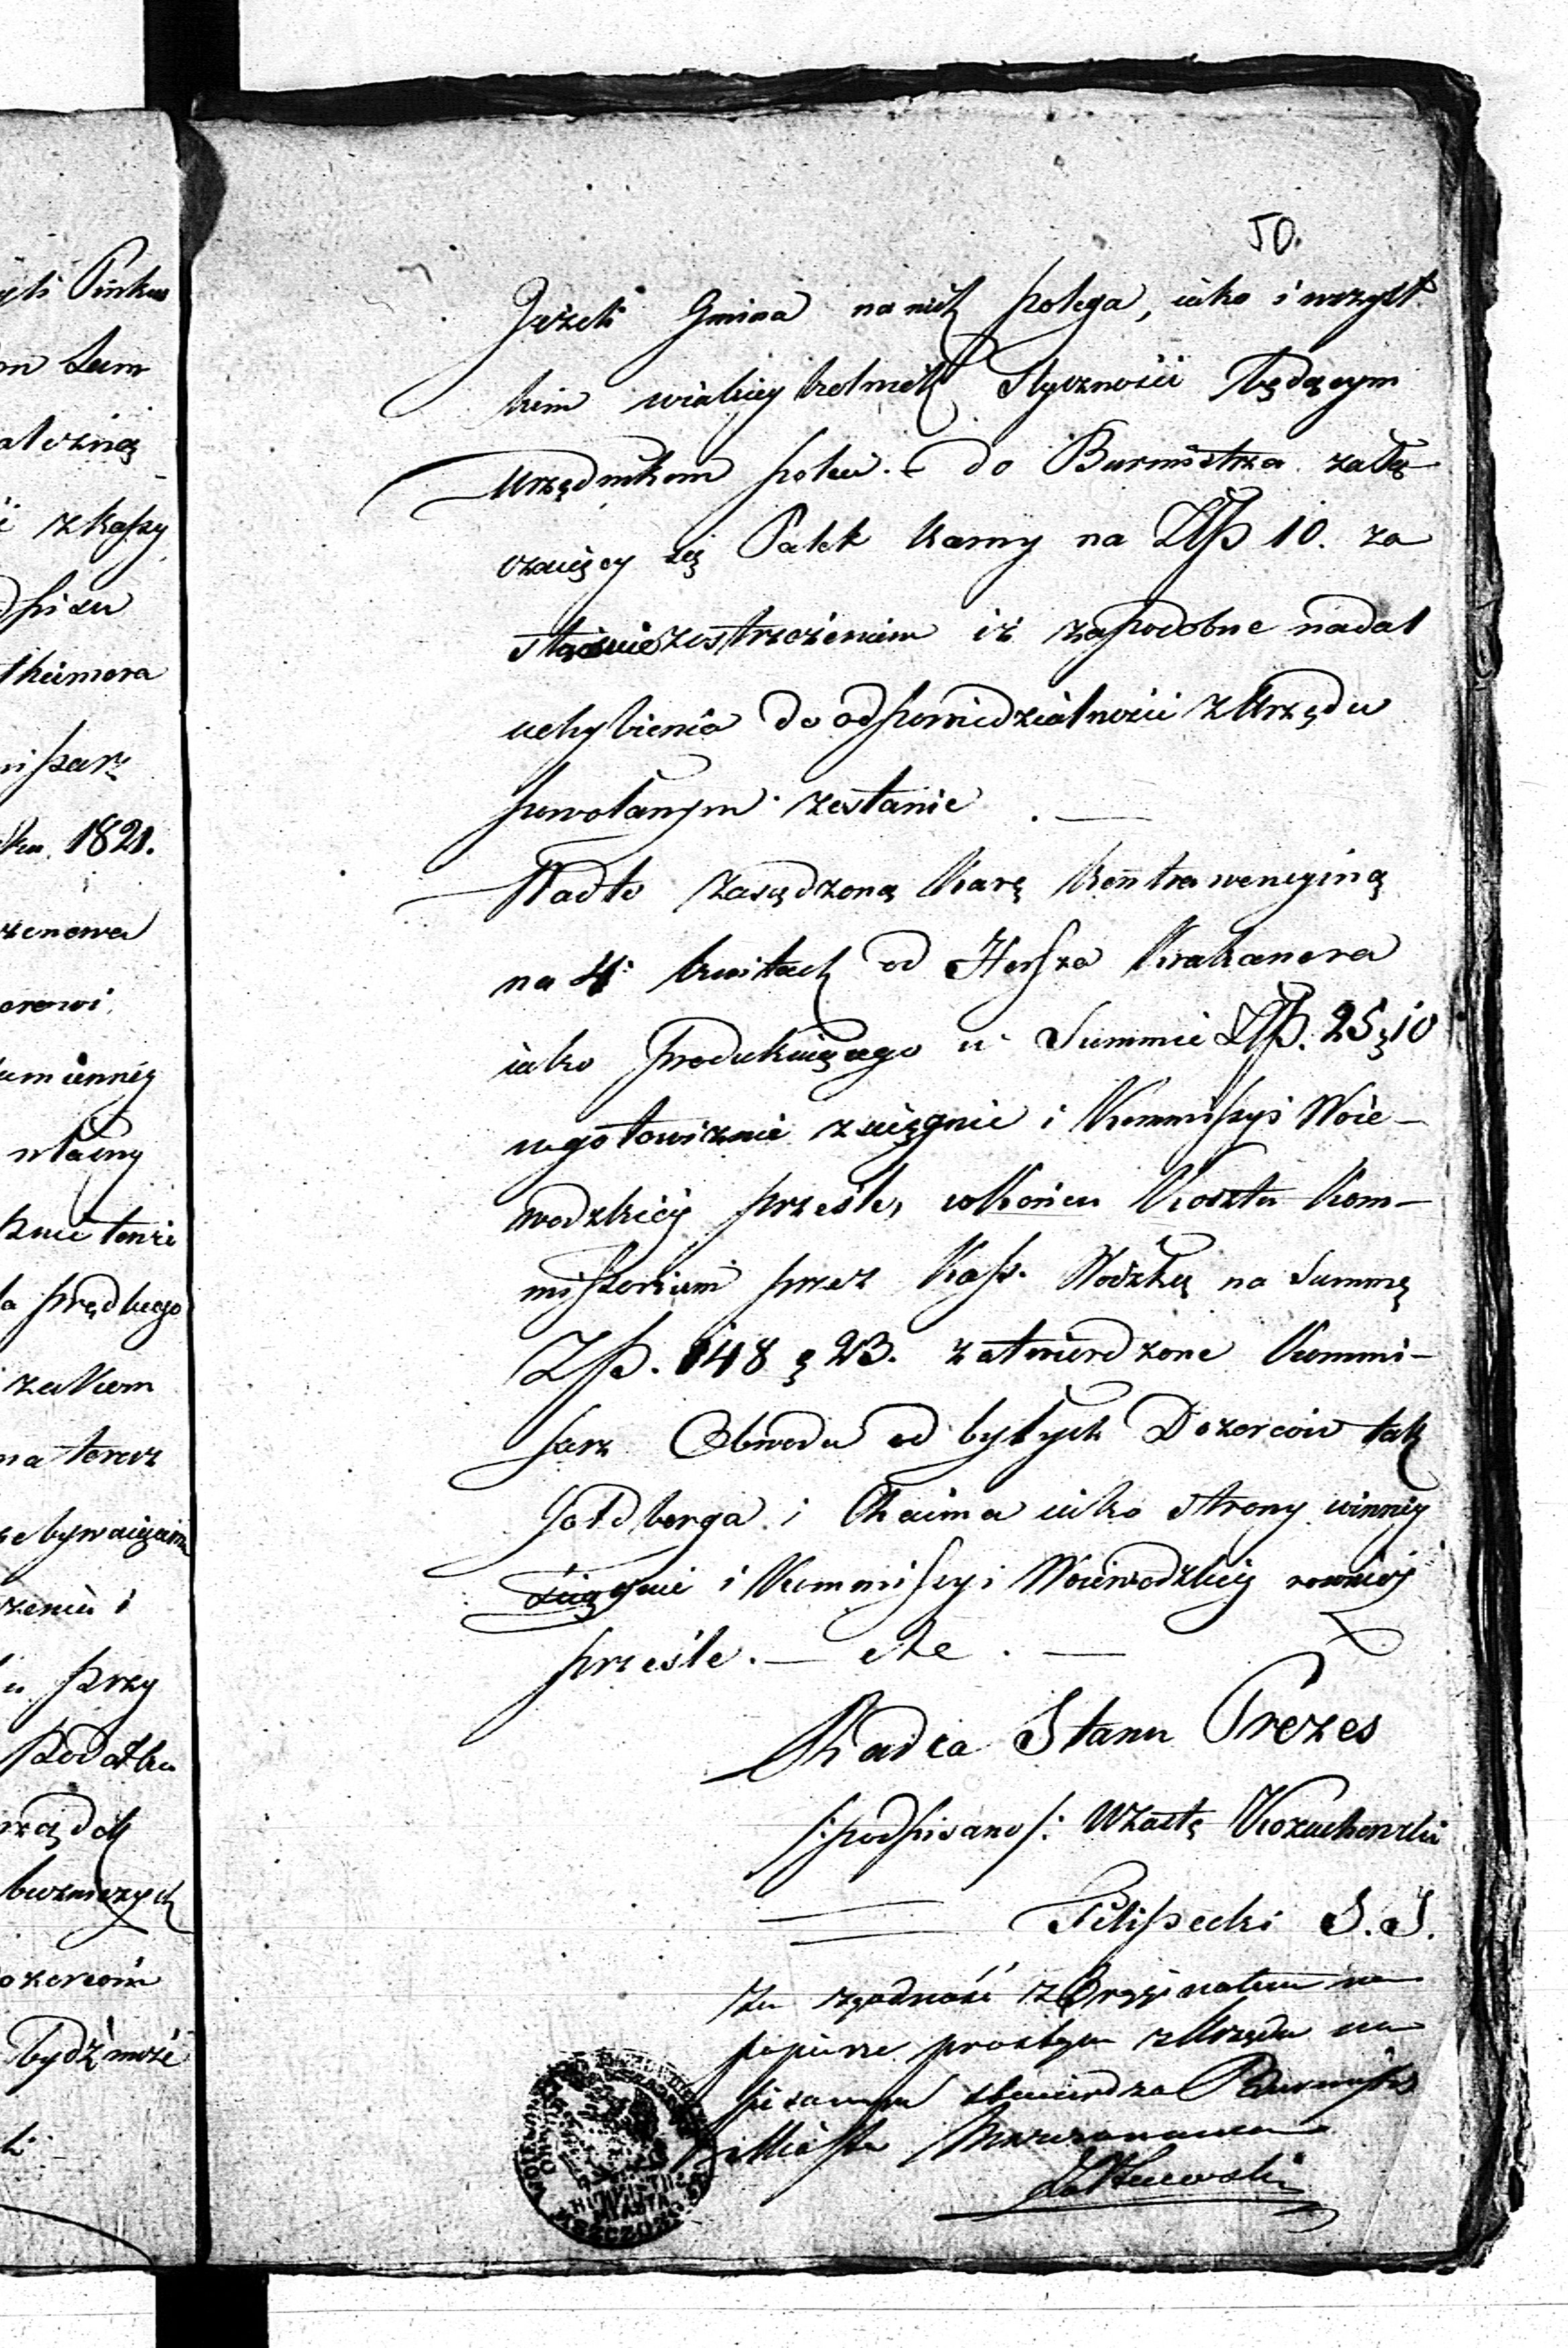 50.
Jeżeli Gmina na nich polega, iako i wszyst
kim wiakiey kolwiek Styczności będącym
Urzędnikom poleci. – do Burmistrza załą
czaiący się Palet karny na Złp 10. za
zostrzeżeniem iż za podobne nadal
uchybienia do odpowiedzialności z Urzędu
powołanym zostanie. —
Nadto zasądzoną Karę Kontrawencyiną
na 4. kwitach od Herszka Krakauera
iako produkuiącego w Summie Złp. 25 g 10
w gotowiznie zciągnie i Kommissyi Woie-
wodzkiey prześle, w końcu Koszta Kom-
missorium przez Kass. Wodzką na Summę
Złp. 148 g 23. zatwierdzone Kommi-
sarz Obwodu od byłych Dozorców tak
Goldberga i Chaima iako strony winney
ściągnie i Kommissyi Woiewodzkiey
prześle. — etc. —
Radca Stanu Prezes
/:podpisano/: W Zastę Kożuchowski
Filipecki S. J.
Za zgodność z Oryginałem na
papierze prostym z Urzędu na
pisanym stwierdza Burmistrz
Miasta
MIASTA